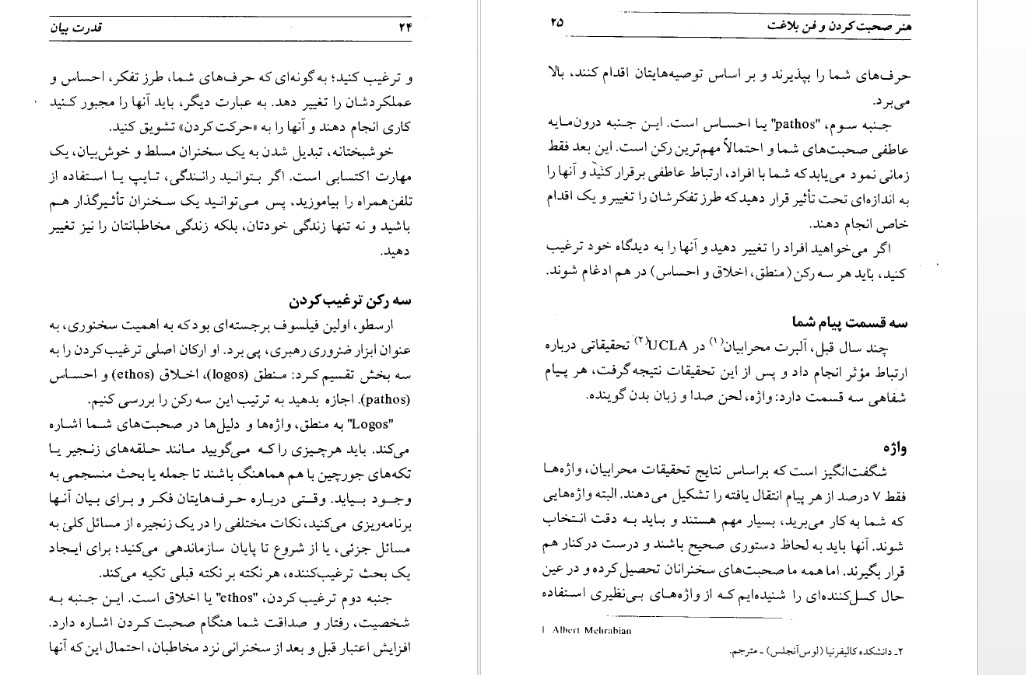 ۲۴ قدرت بیان
و ترغیب کنید؛ به گونه‌ای که حرف‌های شما، طرز تفکر، احساس و
عملکردشان را تغییر دهد. به عبارت دیگر، باید آنها را مجبور کنید
کاری انجام دهند و آنها را به «حرکت کردن» تشویق کنید.
خوشبختانه، تبدیل شدن به یک سخنران مسلط و خوش‌بیان، یک
مهارت اکتسابی است. اگر بتوانید رانندگی، تایپ یا استفاده از
تلفن‌همراه را بیاموزید، پس می‌توانید یک سخنران تأثیرگذار هم
باشید و نه تنها زندگی خودتان، بلکه زندگی مخاطبانتان را نیز تغییر
دهید.
سه رکن ترغیب‌کردن
ارسطو، اولین فیلسوف برجسته‌ای بود که به اهمیت سخنوری، به
عنوان ابزار ضروری رهبری، پی برد. او ارکان اصلی ترغیب‌کردن را به
سه بخش تقسیم کرد: منطق (logos)، اخلاق (ethos) و احساس
(pathos). اجازه بدهید به ترتیب این سه رکن را بررسی کنیم.
"Logos" به منطق، واژه‌ها و دلیل‌ها در صحبت‌های شما اشاره
می‌کند. باید هرچیزی را که می‌گویید مانند حلقه‌های زنجیر یا
تکه‌های جورچین با هم هماهنگ باشند تا جمله یا بحث منسجمی به
وجود بیاید. وقتی درباره حرف‌هایتان فکر و برای بیان آنها
برنامه‌ریزی می‌کنید، نکات مختلفی را در یک زنجیره از مسائل کلی به
مسائل جزئی، یا از شروع تا پایان سازماندهی می‌کنید؛ برای ایجاد
یک بحث ترغیب‌کننده، هر نکته بر نکته قبلی تکیه می‌کند.
جنبه دوم ترغیب کردن، "ethos" یا اخلاق است. این جنبه به
شخصیت، رفتار و صداقت شما هنگام صحبت کردن اشاره دارد.
افزایش اعتبار قبل و بعد از سخنرانی نزد مخاطبان، احتمال این که آنها
هنر صحبت کردن و فن بلاغت ۲۵
حرف‌های شما را بپذیرند و بر اساس توصیه‌هایتان اقدام کنند، بالا
می‌برد.
جنبه سوم، "pathos" یا احساس است. این جنبه درون‌مایه
عاطفی صحبت‌های شما و احتمالاً مهم‌ترین رکن است. این بعد فقط
زمانی نمود می‌یابد که شما با افراد، ارتباط عاطفی برقرار کنید و آنها را
به اندازه‌ای تحت تأثیر قرار دهید که طرز تفکرشان را تغییر و یک اقدام
خاص انجام دهند.
اگر می‌خواهید افراد را تغییر دهید و آنها را به دیدگاه خود ترغیب
کنید، باید هر سه رکن (منطق، اخلاق و احساس) در هم ادغام شوند.
سه قسمت پیام شما
چند سال قبل، آلبرت محرابیان(۱) در UCLA(۲) تحقیقاتی درباره
ارتباط مؤثر انجام داد و پس از این تحقیقات نتیجه گرفت، هر پیام
شفاهی سه قسمت دارد: واژه، لحن صدا و زبان بدن گوینده.
واژه
شگفت‌انگیز است که براساس نتایج تحقیقات محرابیان، واژه‌ها
فقط ۷ درصد از هر پیام انتقال یافته را تشکیل می‌دهند. البته واژه‌هایی
که شما به کار می‌برید، بسیار مهم هستند و باید به دقت انتخاب
شوند. آنها باید به لحاظ دستوری صحیح باشند و درست در کنار هم
قرار بگیرند. اما همه ما صحبت‌های سخنرانان تحصیل کرده و در عین
حال کسل‌کننده‌ای را شنیده‌ایم که از واژه‌های بی‌نظیری استفاده
1 Albert Mehrabian
۲ـ دانشکده کالیفرنیا (لوس‌آنجلس) ـ مترجم.